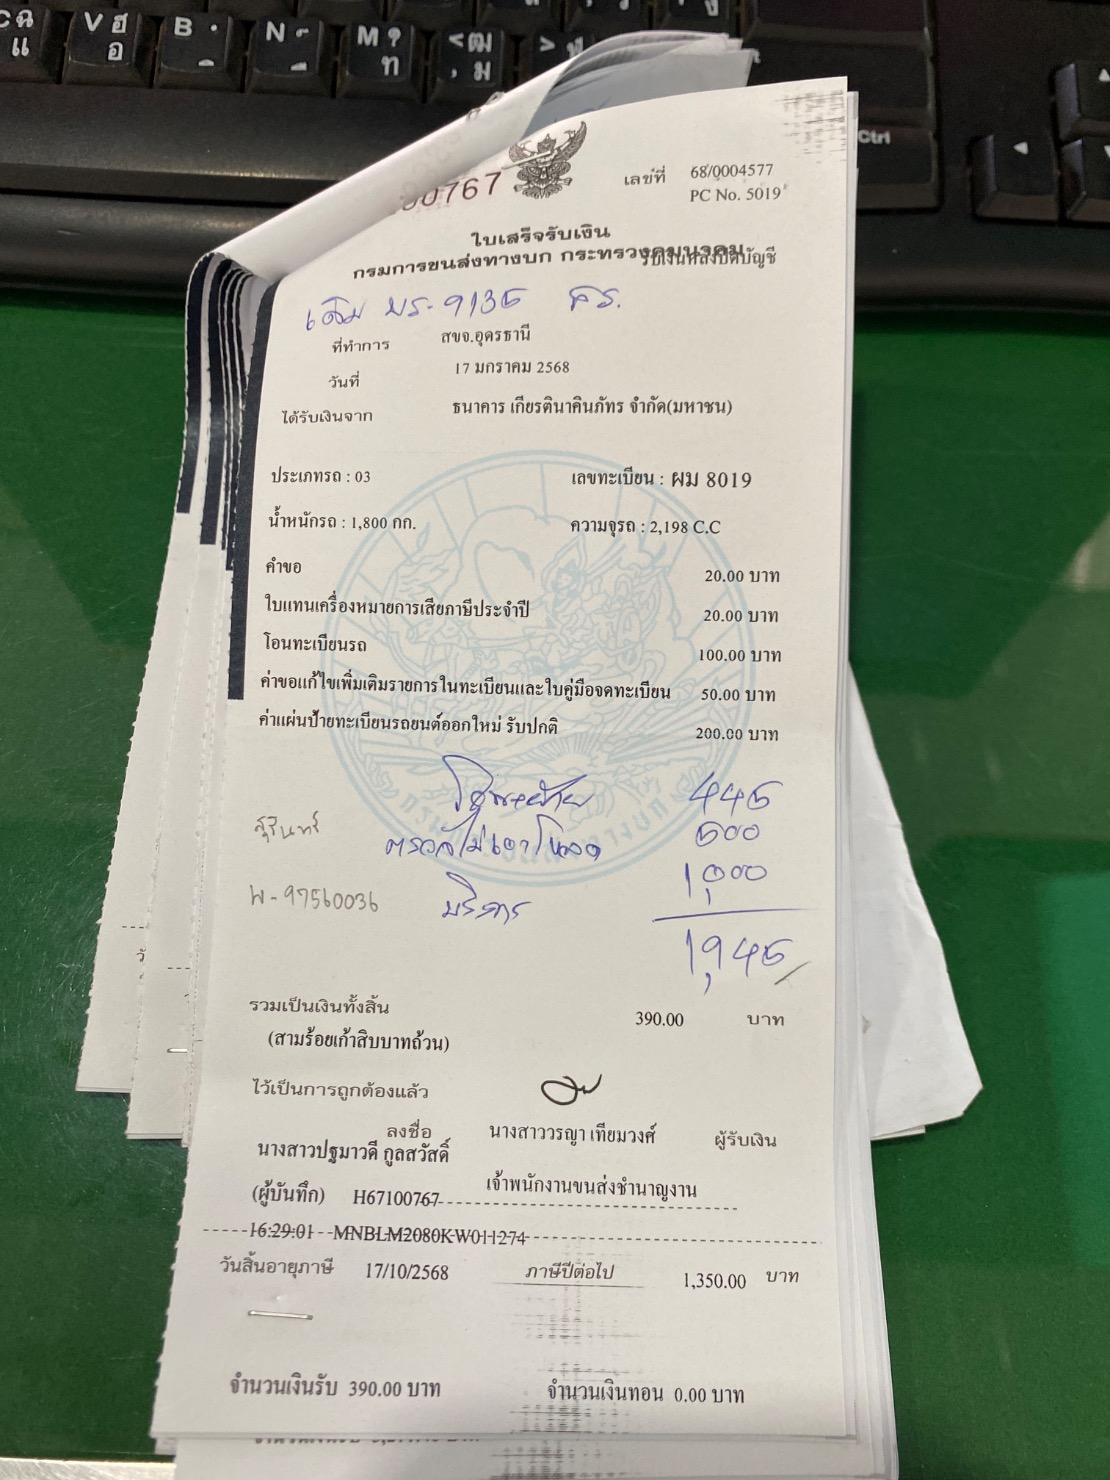 เลขที่ 68/0004577
PC No. 5019
00767
ใบเสร็จรับเงิน
กรมการขนส่งทางบก กระทรวงคมนาคม
รับเงินหลังปิดบัญชี
เดิม บร-9135
ที่ทำการ สขจ.อุดรธานี
วันที่ 17 มกราคม 2568
ได้รับเงินจาก ธนาคาร เกียรตินาคินภัทร จำกัด(มหาชน)
ประเภทรถ : 03 เลขทะเบียน : ผม 8019
น้ำหนักรถ : 1,800 กก. ความจุรถ : 2,198 C.C
คำขอ 20.00 บาท
ใบแทนเครื่องหมายการเสียภาษีประจำปี 20.00 บาท
โอนทะเบียนรถ 100.00 บาท
ค่าขอแก้ไขเพิ่มเติมรายการในทะเบียนและใบคู่มือจดทะเบียน 50.00 บาท
ค่าแผ่นป้ายทะเบียนรถยนต์ออกใหม่ รับปกติ 200.00 บาท
445
สุรินทร์ 500
1,000
W-97560036 บริการ
1,945
รวมเป็นเงินทั้งสิ้น 390.00 บาท
(สามร้อยเก้าสิบบาทถ้วน)
ไว้เป็นการถูกต้องแล้ว
ลงชื่อ นางสาววรญา เทียมวงศ์ ผู้รับเงิน
นางสาวปฐมาวดี กูลสวัสดิ์
(ผู้บันทึก) H67100767 เจ้าพนักงานขนส่งชำนาญงาน
16:29:01 MNBLM2080KW011274
วันสิ้นอายุภาษี 17/10/2568 ภาษีปีต่อไป 1,350.00 บาท
จำนวนเงินรับ 390.00 บาท จำนวนเงินทอน 0.00 บาท